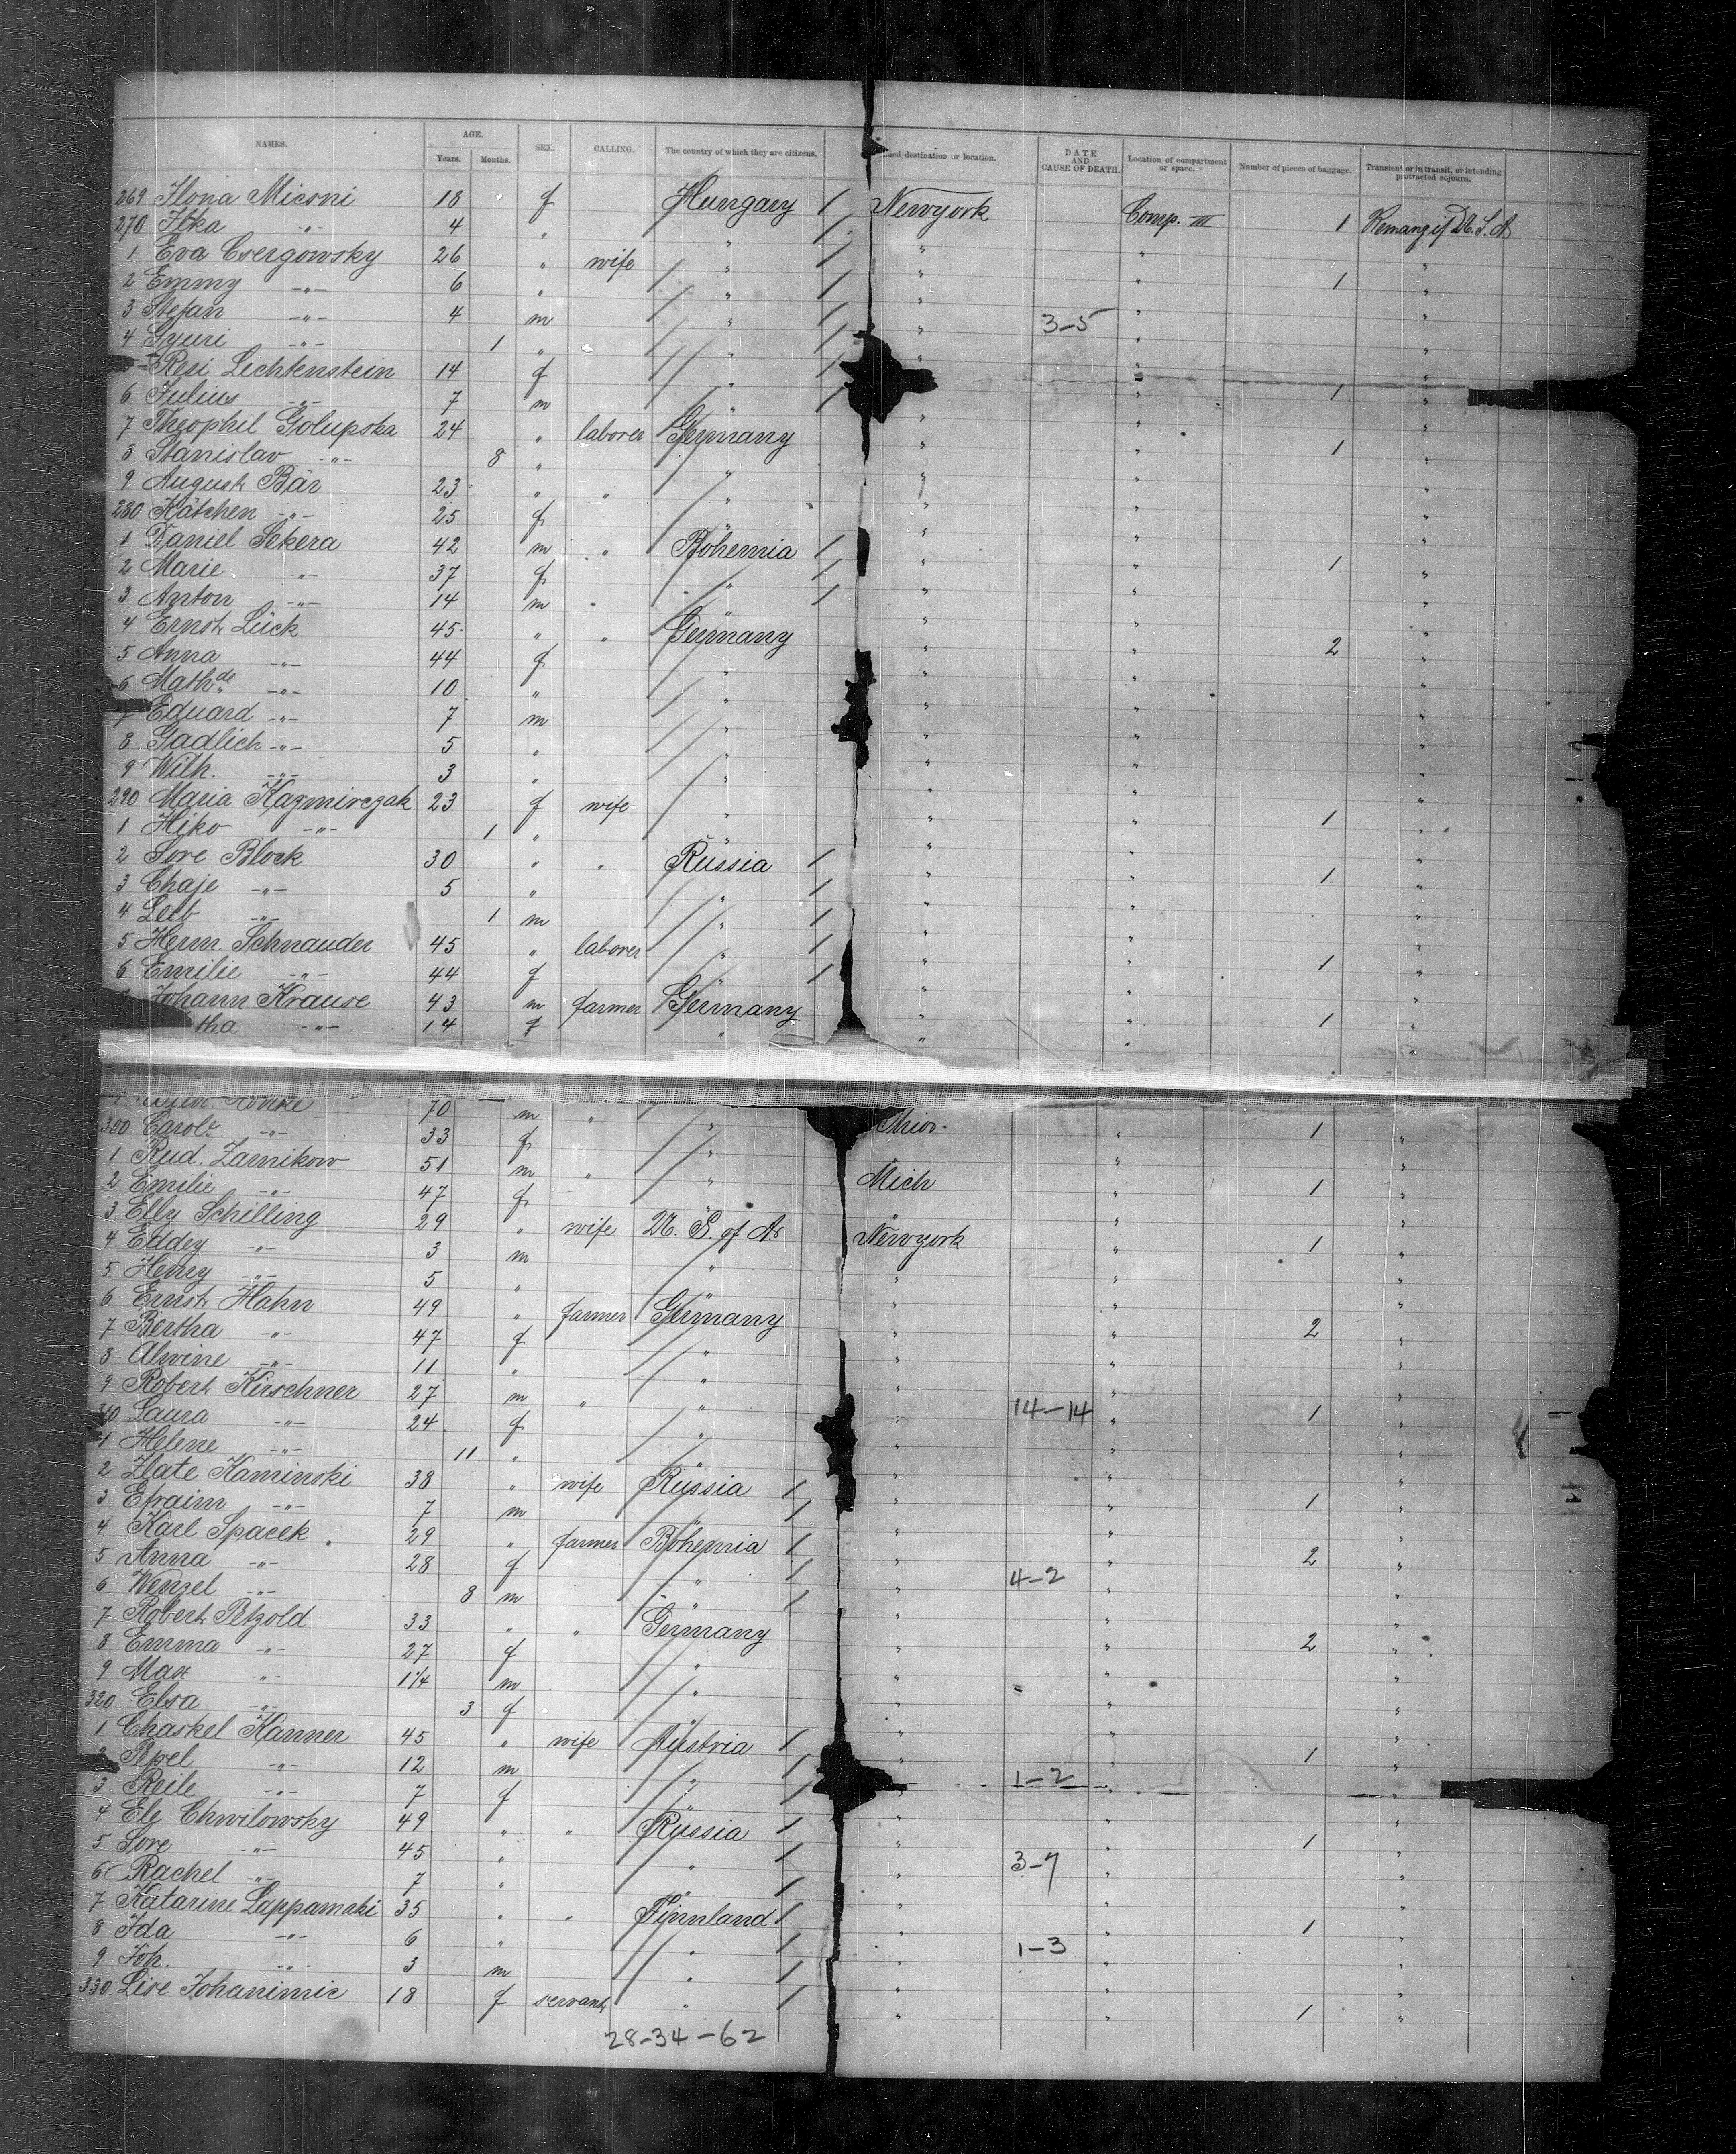 NAMES. AGE. Years. Months. SEX. CALLING. The country of which they are citizens. destination or location. DATE AND CAUSE OF DEATH. Location of compartment or space. Number of pieces of baggage. Transient or in transit, or intending protracted sojourn.
269 Ilona Micsni 18 f Hungary / Newyork Comp. III 1 U.S.A
270 Ilka -"- 4 " " / " "
1 Eva Csergowsky 26 " wife " / " " "
2 Emmy -"- 6 " " / " " 1 "
3 Stefan -"- 4 m " / " 3-5 " "
4 Gyuri -"- 1 " " / " " "
Resi Lechtenstein 14 f " / " "
6 Julius -"- 7 m " / " 1 "
7 Theophil Golupska 24 " laborer Germany " " "
8 Stanislav -"- 8 " " " " 1 "
9 August Bär 23 " " " " " "
280 Kätchen -"- 25 f " " " "
1 Daniel Sekera 42 m " Bohemia / " " "
2 Marie -"- 37 f " / " " 1 "
3 Anton -"- 14 m " " / " " "
4 Ernst Lück 45 " " Germany " " "
5 Anna -"- 44 f " " " 2 "
6 Mathde -"- 10 " " " " "
7 Eduard -"- 7 m " " " "
8 Gadlich -"- 5 " " " " "
9 Wilh. -"- 3 " " " " "
290 Maria Kazmirczak 23 f wife " " " "
1 Hiko -"- 1 " " " " 1 "
2 Sore Block 30 " " Russia / " " "
3 Chaje -"- 5 " " / " " 1 "
4 Leib -"- 1 m " / " " "
5 Herm. Schnauder 45 " laborer " / " " "
6 Emilie -"- 44 f " / " " 1 "
Johann Krause 43 m farmer Germany " " "
tha -"- 14 f " " " 1 "
70 m " "
300 Carole -"- 33 f " " 1 "
1 Rud. Zarnikow 51 m " " Mich " "
2 Emilie -"- 47 f " " 1 "
3 Elly Schilling 29 " wife U. S. of A. Newyork " "
4 Eddey -"- 3 m " " 1 "
5 Henry -"- 5 " " " " "
6 Ernst Hahn 49 " farmer Germany " " "
7 Bertha -"- 47 f " " " 2 "
8 Alwine -"- 11 " " " " "
9 Robert Kirschner 27 m " " " " "
310 Laura -"- 24 f " " 14-14 " 1 "
1 Helene -"- 11 " " " " "
2 Zlate Kaminski 38 " wife Russia / " " "
3 Efraim -"- 7 m " / " " 1 "
4 Karl Spacek 29 " farmer Bohemia / " " "
5 Anna -"- 28 f " / " " 2 "
6 Wenzel -"- 8 m " / " 4-2 " "
7 Robert Petzold 33 " " Germany " " "
8 Emma -"- 27 f " " " 2 "
9 Max -"- 1¼ m " " " "
320 Elsa -"- 3 f " " " "
1 Chaskel Kanner 45 " wife Austria / " " "
-"- 12 m " / " " 1 "
3 Reile -"- 7 f " / 1-2 " "
4 Ele Chwilowsky 49 " " Russia / " " "
5 Sore -"- 45 " " / " " 1 "
6 Rachel -"- 7 " " / " 3-7 " "
7 Katarine Lappamaki 35 " " Finnland / " " "
8 Ida -"- 6 " " / " " 1 "
9 Joh. -"- 3 m " / " 1-3 " "
330 Lise Johanimic 18 f servant " / " " 1 "
28-34-62